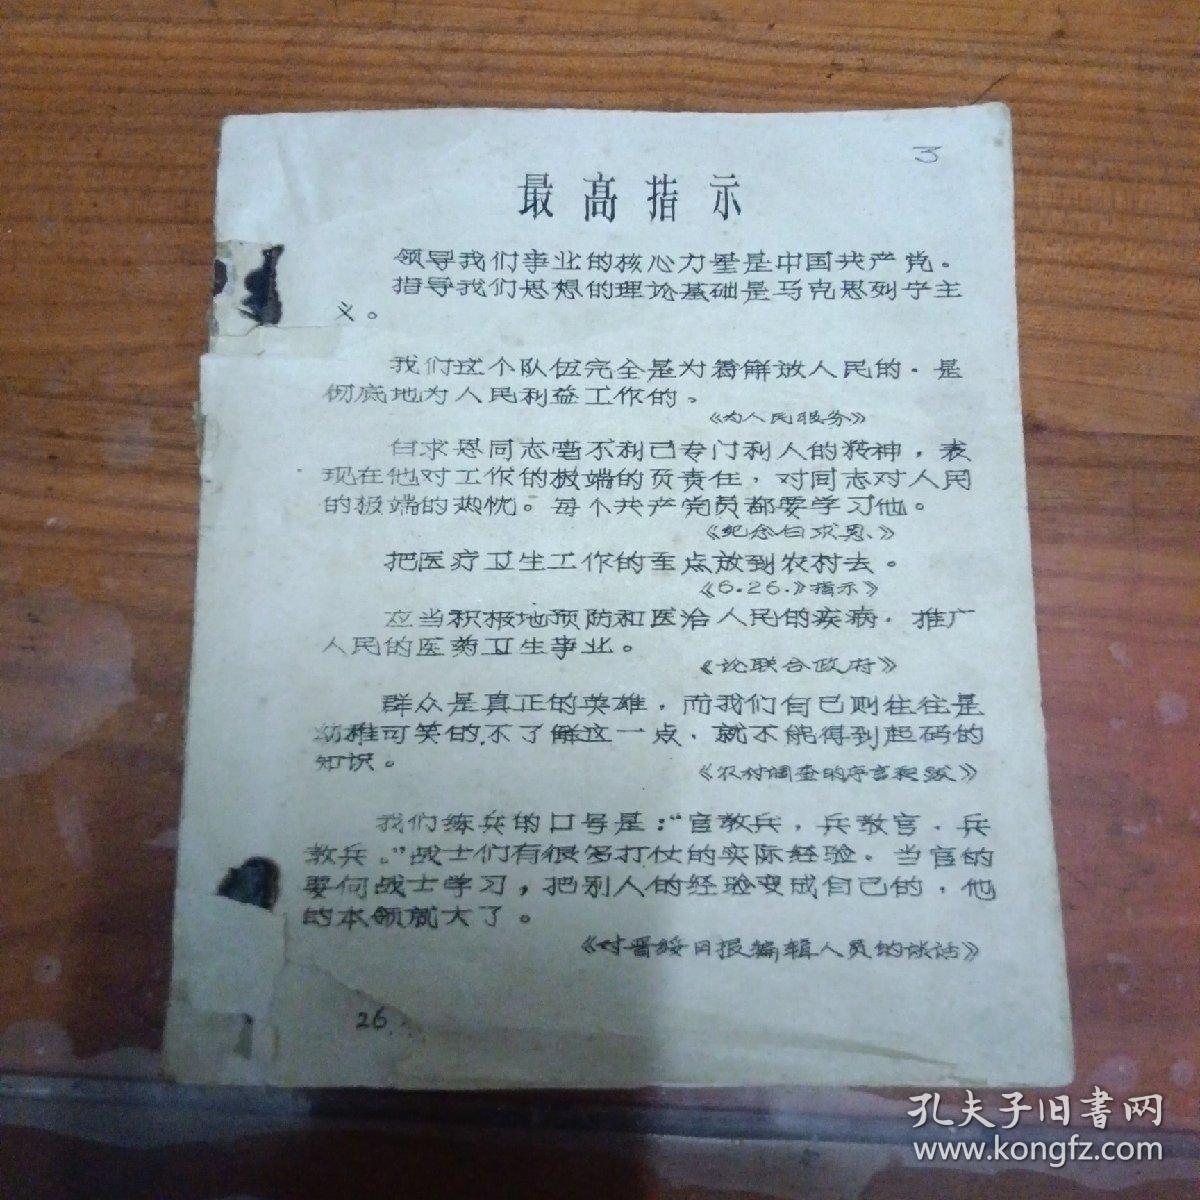 3
最高指示
领导我们事业的核心力量是中国共产党。
指导我们思想的理论基础是马克思列宁主
义。
我们这个队伍完全是为着解放人民的，是
彻底地为人民利益工作的。
《为人民服务》
白求恩同志毫不利己专门利人的精神，表
现在他对工作的极端的负责任，对同志对人民
的极端的热忱。每个共产党员都要学习他。
《纪念白求恩》
把医疗卫生工作的重点放到农村去。
《6.26.》指示》
应当积极地预防和医治人民的疾病，推广
人民的医药卫生事业。
《论联合政府》
群众是真正的英雄，而我们自己则往往是
幼稚可笑的，不了解这一点，就不能得到起码的
知识。
《农村调查的序言和跋》
我们练兵的口号是：“官教兵，兵教官，兵
教兵。”战士们有很多打仗的实际经验。当官的
要向战士学习，把别人的经验变成自己的，他
的本领就大了。
《对晋绥日报编辑人员的谈话》
26.
孔夫子旧書网
www.kongfz.com